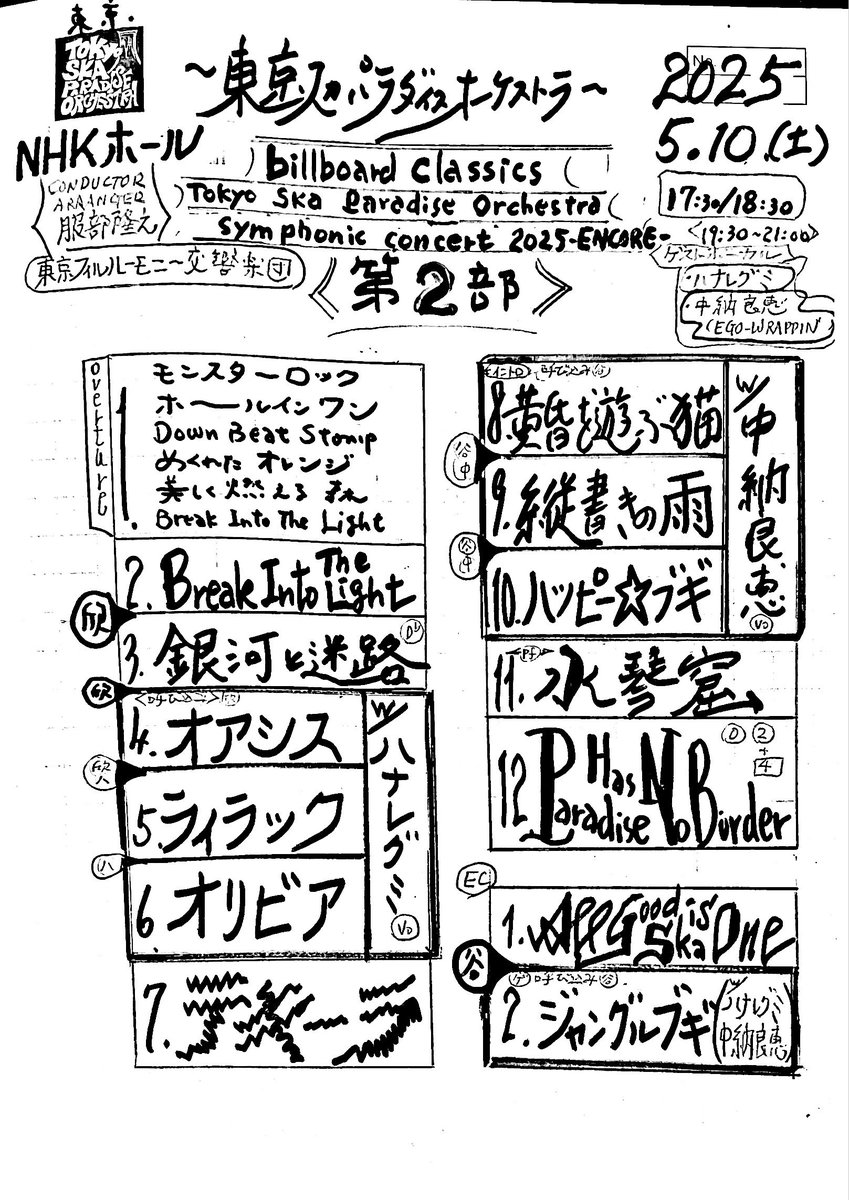 東京
TOKYO
SKA
PARADISE
ORCHESTRA
～東京スカパラダイスオーケストラ～
No.
2025
5.10.(土)
NHKホール
billboard classics
Tokyo Ska Paradise Orchestra
Symphonic concert 2025-ENCORE-
CONDUCTOR
ARRANGER
服部隆え
東京フィルハーモニー交響楽団
17:30/18:30
<19:30~21:00>
ゲストボーカル
・ハナレグミ
・中納良恵
(EGO-WRAPPIN'
《第2部》
overture
1.
モンスターロック
ホールインワン
Down Beat Stomp
めくれたオレンジ
美しく燃える森
Break Into The Light
2. Break Into The Light
欣
3. 銀河と迷路
欣
<呼び込み>
4. オアシス
欣ハ
5. ライラック
ハ
6. オリビア
w/ハナレグミ
Vo
7.
イントロ 呼び込み 谷
8. 黄昏を遊ぶ猫
谷中
9. 縦書きの雨
谷中
10. ハッピー☆ブギ
w/中納良恵
Vo
11. 水琴窟
12. Paradise Has No Border
D 2
+
4
EC
1. All Good Ska is One
谷
ゲ 呼び込み 谷
2. ジャングルブギ
(w/ハナレグミ
中納良恵)